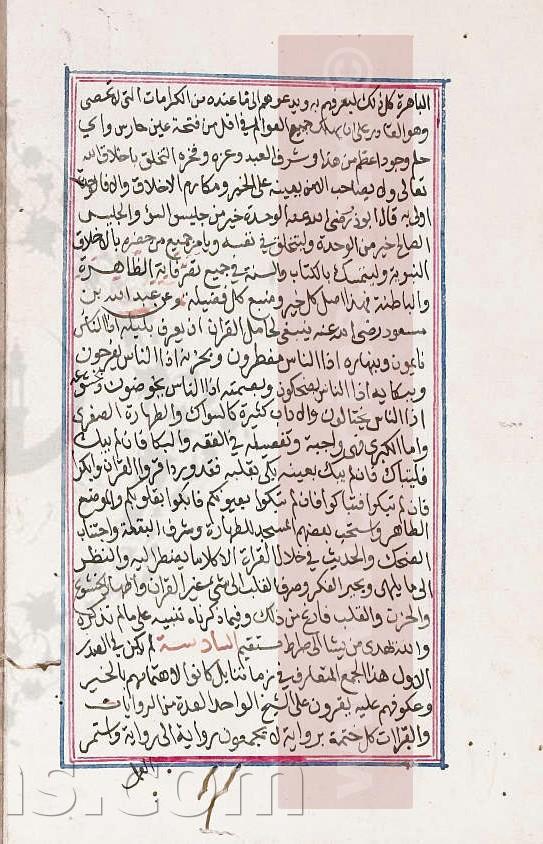 الباهرة كل ذلك ليعرفهم به ويدعوهم الى ما عنده من الكرامات التي لا تحصى
وهو القادر على ان يهلك جميع العوالم في اقل من فتحة عين حارس واي
حلم وجود اعظم من هذا وشرف العبد وعزه وفخره التخلق باخلاق الله
تعالى ولا يصاحب الا من يعينه على الخير ومكارم الاخلاق والا فالوحدة
اولى به قال ابو ذر رضي الله عنه الوحدة خير من جليس السوء والجليس
الصالح خير من الوحدة وليتخلق في نفسه ويامر جميع من حضره بالاخلاق
النبوية وليتمسك بالكتاب والسنة في جميع تصرفاته الظاهرة
والباطنة فهذا اصل كل خير ومنبع كل فضيلة وعن عبد الله بن
مسعود رضي الله عنه ينبغي لحامل القران ان يعرف بليله اذا الناس
نايمون وبنهاره اذا الناس مفطرون وبحزنه اذا الناس يفرحون
وببكايه اذا الناس يضحكون وبصمته اذا الناس يخوضون وبخشوعه
اذا الناس يختالون والاداب كثيرة كالسواك والطهارة الصغرى
واما الكبرى فهي واجبة وتفصيله في الفقه والبكا فان لم يبك
فليتباك فان لم يبك بعينه بكى بقلبه فقد ورد اقرءوا القران وابكوا
فان لم تبكوا فتباكوا فان لم تبكوا بعيونكم فابكوا بقلوبكم والموضع
الطاهر واستحب بعضهم المسجد للطهارة وشرف البقعة واجتناب
الضحك والحديث في خلال القراءة الا كلاما يضطر اليه والنظر
الى ما يلهي ويحير الفكر وصرف القلب الى شي غير القران واظهار الخشوع
والحزن والقلب فارغ من ذلك وفيما ذكرناه تنبيه على ما لم نذكره
والله يهدي من يشا الى صراط مستقيم السادسة لم يكن في الصدر
الاول هذا الجمع المتعارف في زماننا بل كانوا لاهتمامهم بالخير
وعكوفهم عليه يقرون على الشيخ الواحد العدة من الروايات
والقراات كل ختمة برواية لا يجمعون رواية الى رواية واستمر
العمل
s.com